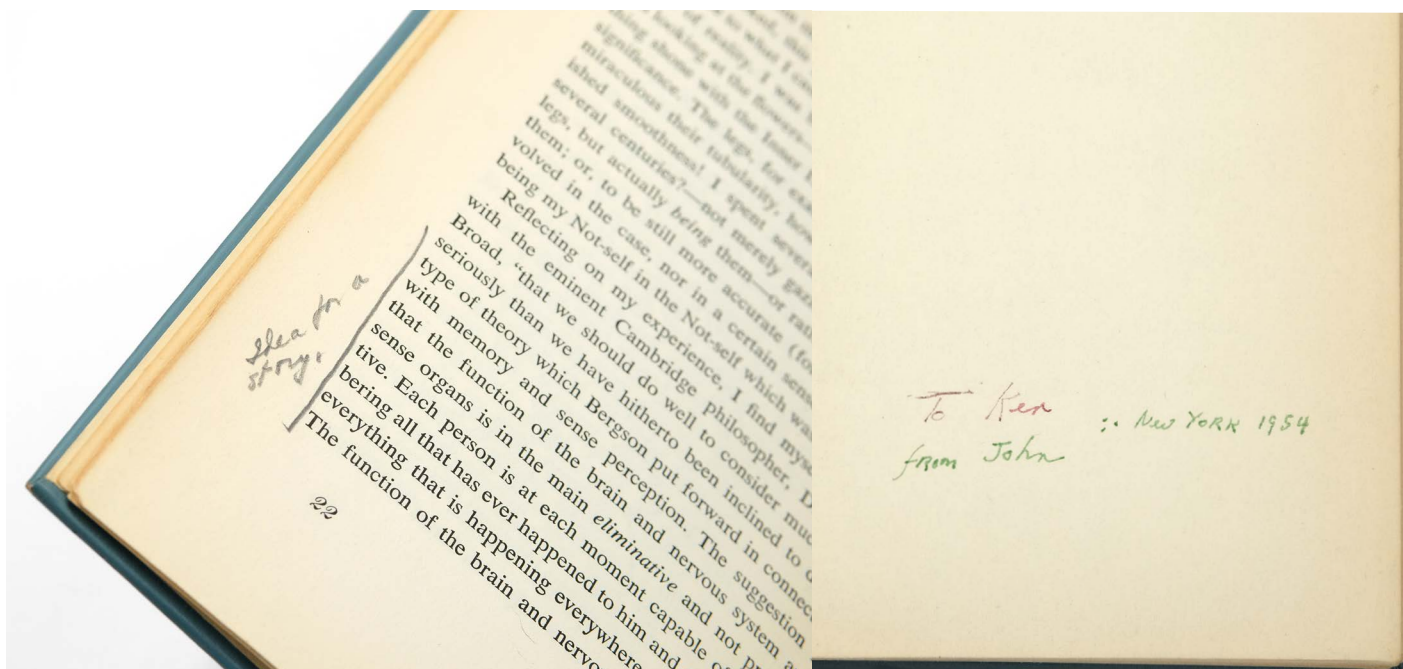 to what I
of reality. I was
looking at the flowers—
thing shone with the Inner
significance. The legs, for exa
miraculous their tubularity, how
ished smoothness! I spent sever
several centuries?—not merely gaz
legs, but actually being them—or rat
them; or, to be still more accurate (fo
volved in the case, nor in a certain sens
being my Not-self in the Not-self which wa
Reflecting on my experience, I find myse
with the eminent Cambridge philosopher, D
Broad, "that we should do well to consider muc
seriously than we have hitherto been inclined to d
type of theory which Bergson put forward in connec
with memory and sense perception. The suggestion
that the function of the brain and nervous system a
sense organs is in the main eliminative and not pr
tive. Each person is at each moment capable o
bering all that has ever happened to him and
everything that is happening everywhere
The function of the brain and nervo
22
Idea for a
story.
To Ken
from John :. New York 1954